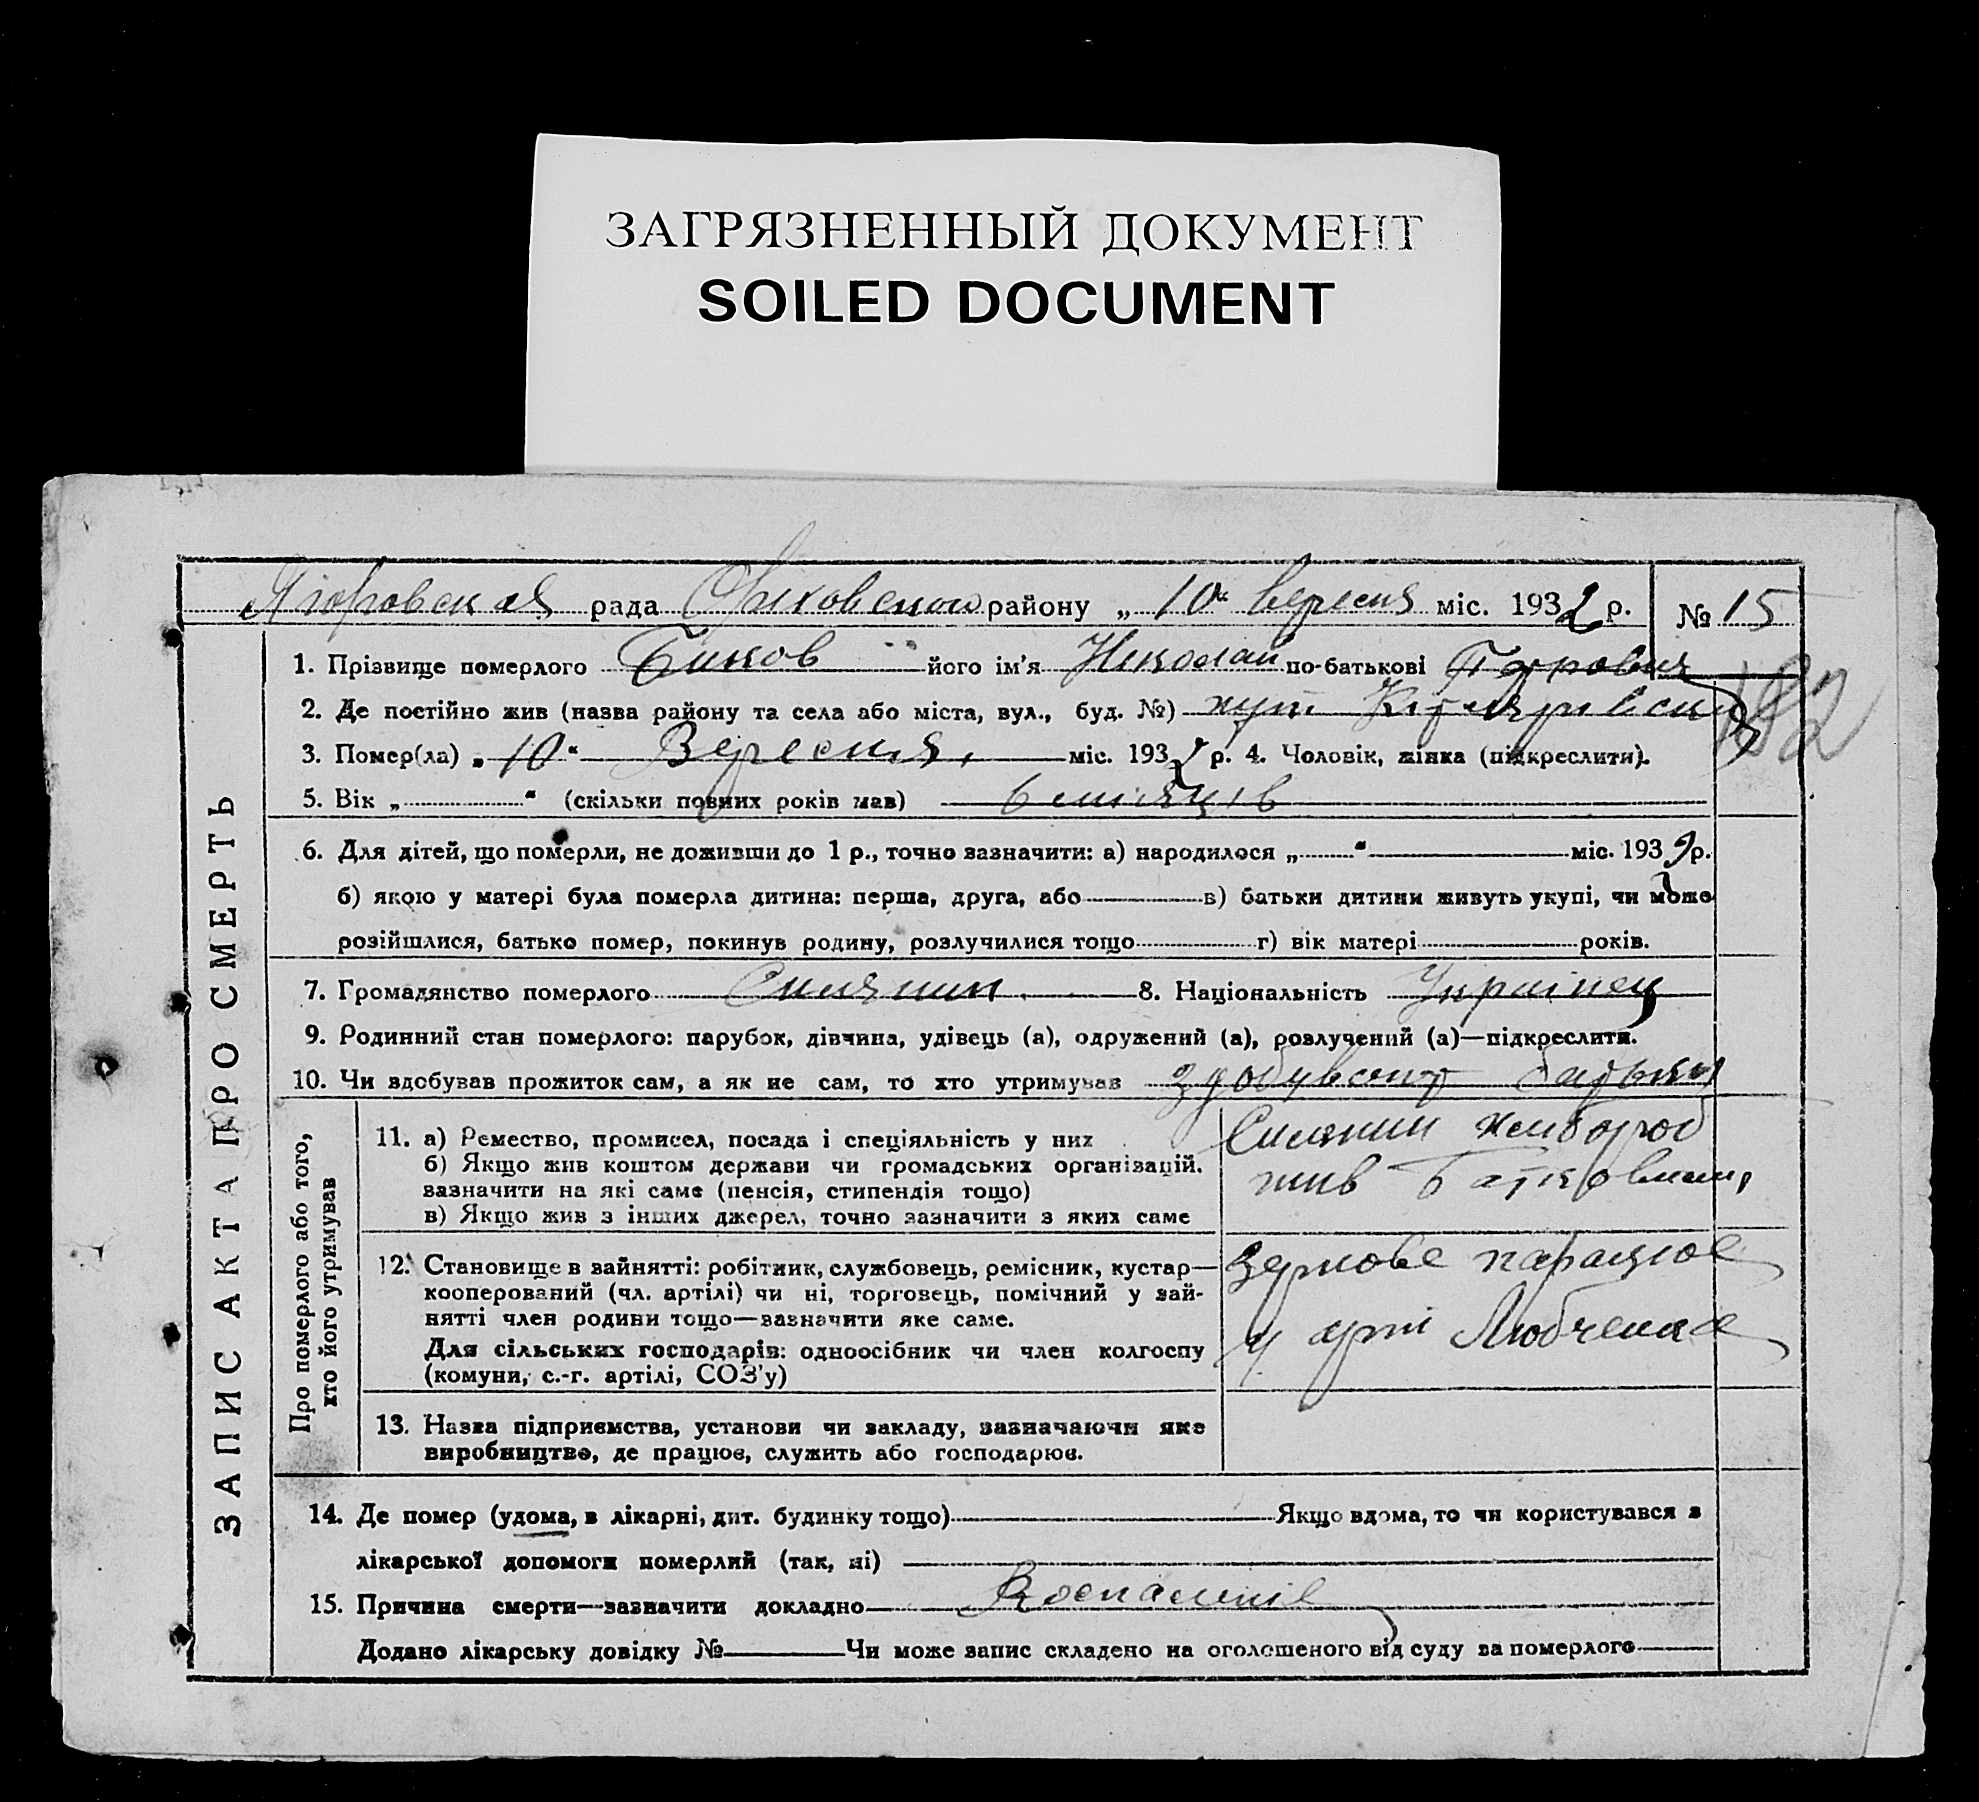 ЗАГРЯЗНЕННЫЙ ДОКУМЕНТ
SOILED DOCUMENT
рада району „ 10 " вересня міс. 1932 р. № 15
1. Прізвище померлого Биков його ім'я Николай по-батькові
182
2. Де постійно жив (назва району та села або міста, вул., буд. №) хут
3. Помер(ла) „ 10 " Вересня, міс. 1932 р. 4. Чоловік, жінка (підкреслити).
5. Вік „ " (скільки повних років мав) 6 місяців
6. Для дітей, що померли, не доживши до 1 р., точно зазначити: а) народилося „ " міс. 1932 р.
б) якою у матері була померла дитина: перша, друга, або в) батьки дитини живуть укупі, чи може
розійшлися, батько помер, покинув родину, розлучилися тощо г) вік матері років.
7. Громадянство померлого Силянин. 8. Національність Украінец
9. Родинний стан померлого: парубок, дівчина, удівець (а), одружений (а), розлучений (а)—підкреслити.
10. Чи здобував прожиток сам, а як не сам, то хто утримував батьки
ЗАПИС АКТА ПРО СМЕРТЬ
Про померлого або того,
хто його утримував
11. а) Ремество, промисел, посада і спеціяльність у них
б) Якщо жив коштом держави чи громадських організацій.
зазначити на які саме (пенсія, стипендія тощо)
в) Якщо жив з інших джерел, точно зазначити з яких саме
Силянин хлибороб
жив
12. Становище в зайнятті: робітник, службовець, ремісник, кустар—
кооперований (чл. артілі) чи ні, торговець, помічний у зай-
нятті член родини тощо—зазначити яке саме.
Для сільських господарів: одноосібник чи член колгоспу
(комуни, с.-г. артілі, СОЗ'у)
у арті Любченка
13. Назва підприємства, установи чи закладу, зазначаючи яке
виробництво, де працює, служить або господарює.
14. Де помер (удома, в лікарні, дит. будинку тощо) Якщо вдома, то чи користувався з
лікарської допомоги померлий (так, ні)
15. Причина смерти—зазначити докладно Воспаление
Додано лікарську довідку № Чи може запис складено на оголошеного від суду за померлого